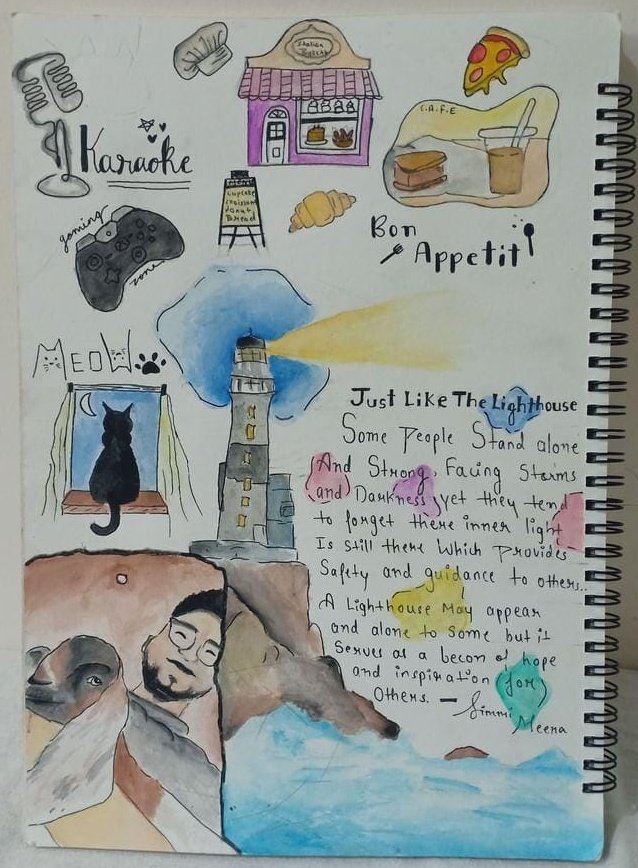 Italian
Karaoke
C.A.F.E
cupcake
croissant
donut
Bread
gaming
zone
Bon
Appetit
MEOW
Just Like The Lighthouse
Some People Stand alone
And Strong, Facing Storms
and Darkness, yet they tend
to forget there inner light
Is still there Which Provides
Safety and guidance to others..
A Lighthouse May appear
and alone to some but it
Serves as a becon of hope
and inspiration (for)
Others. — Simmi
Meena